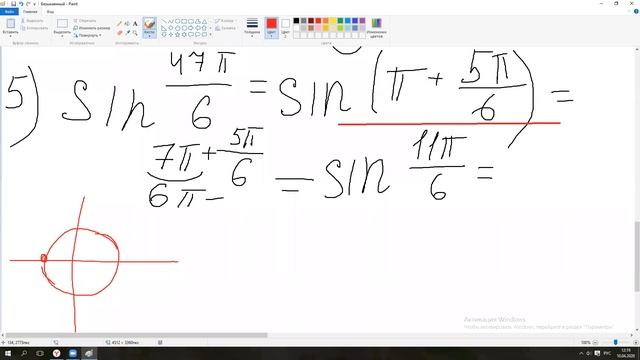 Безымянный - Paint
Файл Главная Вид
Вставить
Выделить
Обрезать
Изменить размер
Повернуть
Кисти
Контур
Заливка
Толщина
Цвет 1
Цвет 2
Изменение цветов
Буфер обмена Изображение Инструменты Фигуры Цвета
5) sin 47π/6 = sin (π + 5π/6) =
7π + 5π/6
6π -
= sin 11π/6 =
Активация Windows
Чтобы активировать Windows, перейдите в раздел "Параметры".
134, 2775пкс 4512 × 3360пкс 100%
РУС 12:19 10.04.2020